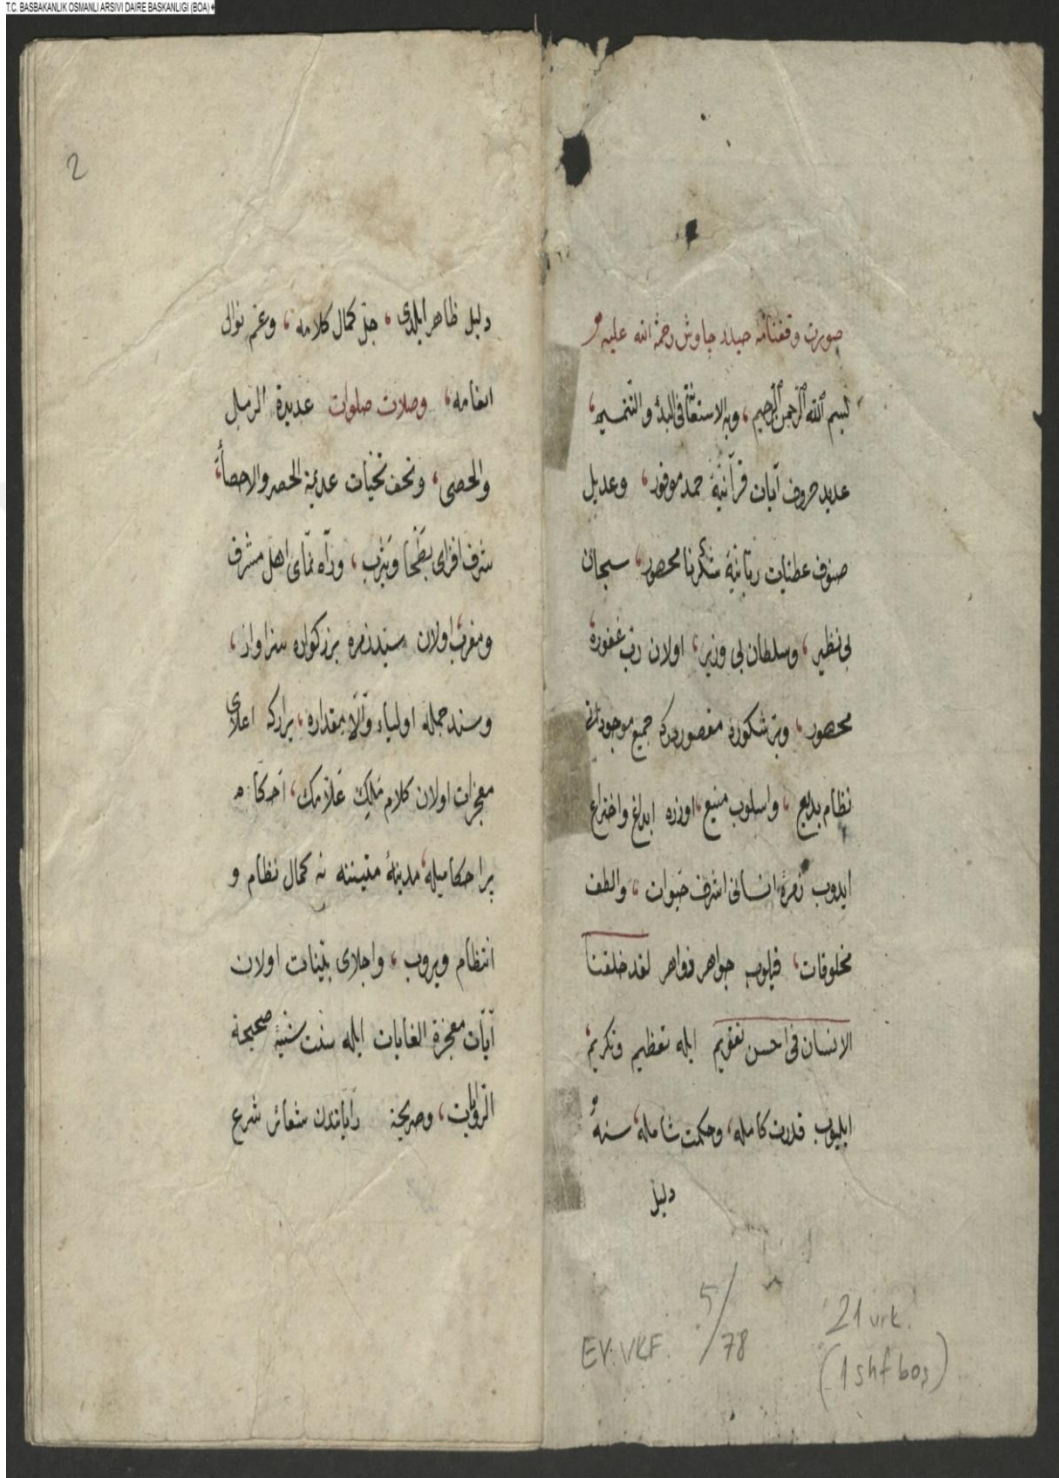 T.C. BASBAKANLIK OSMANLI ARSIVI DAIRE BASKANLIGI (BOA)
صورت وقفنامه حیدر چاوش رحمة الله علیه
بسم الله الرحمن الرحیم، وبه الاستعانة فی البدء والتتمیم،
عدید حروف آیات قرآنیه حمد موفور، وعدیل
صنوف عطیات ربانیه شکر نا محصور، سبحان
بی نظیر، وسلطان بی وزیر، اولان رب غفوره
محصور، و شکوره مقصوردرکه جمیع موجوداتی
نظام بدیع، واسلوب منیع، اوزره ابداع واختراع
ایدوب زمرۀ انسانی اشرف حیوات، والطف
مخلوقات، قیلوب جواهر زواهر لقد خلقنا
الانسان فی احسن تقویم ایله تعظیم وتکریم
ایلیوب قدرت کامله، وحکمت شامله، سنه
دلیل
EV.VKF. 5/78
21 vrk.
(1 shf boş)
2
دلیل ظاهر ایلدی، جل کمال کلامه، وعم نوالی
انعامه، وصلات صلوات عدیدة الرمل
والحصی، وتحف تحیات عدیمة الحصر والاحصاء،
شرف افزای بطحا ویثرب، و نمای اهل مشرق
ومغرب اولان سید زمره بزرکواره سزاوار،
وسند جمله اولیاء بمقداره، اعلای
معجزات اولان کلام ملیک علامک، احکام
احکامیله، مدینۀ کمال نظام و
انتظام ویروب، واجلای بینات اولان
آیات معجزة الغایات ایله سنت سنیۀ صحیحة
الروایت، وصریحة شعائر شرع